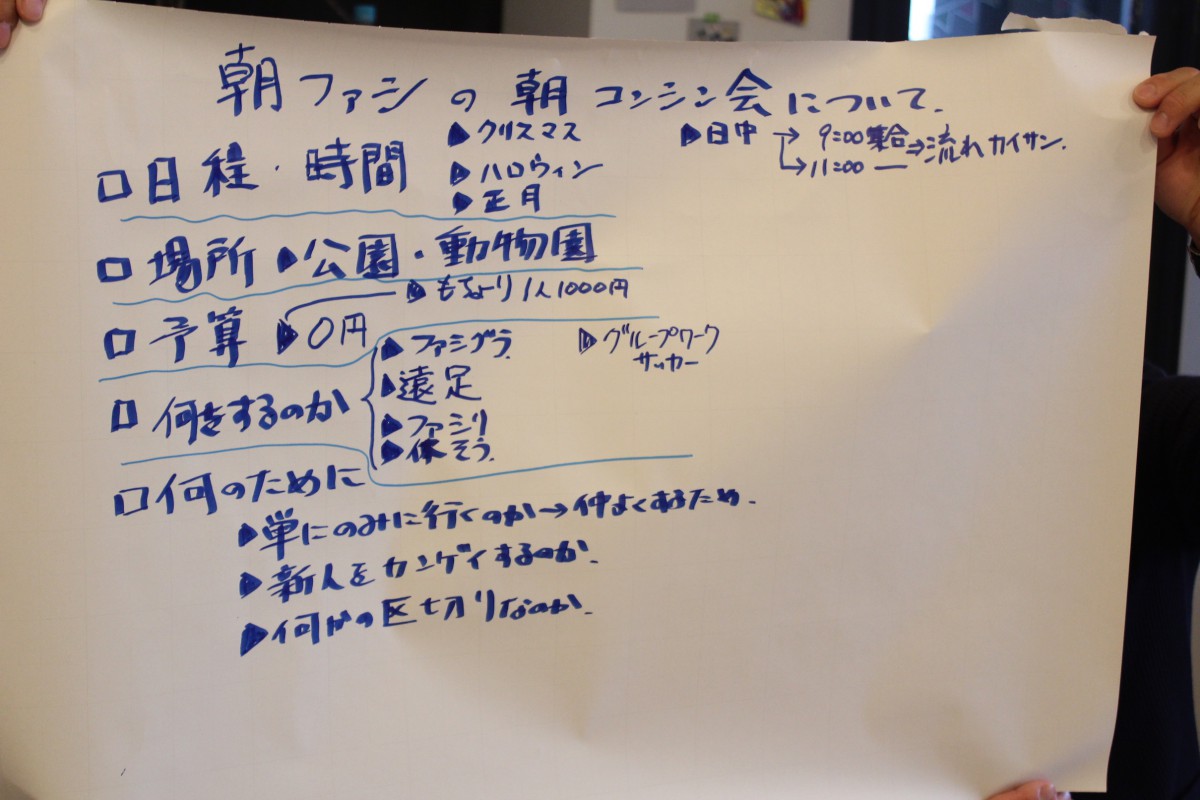 朝ファシの朝コンシン会について.
□日程・時間
▶クリスマス
▶ハロウィン
▶正月
▶日中→9:00集合⇒流れカイサン.
→11:00 —
□場所▶公園・動物園
□予算▶0円
▶もちより1人1000円
□何をするのか
▶ファシグラ.
▶遠足
▶ファシリ
▶体そう.
▶グループワーク
サッカー
□何のために
▶単にのみに行くのか→仲よくするため.
▶新人をカンゲイするのか.
▶何かの区切りなのか.